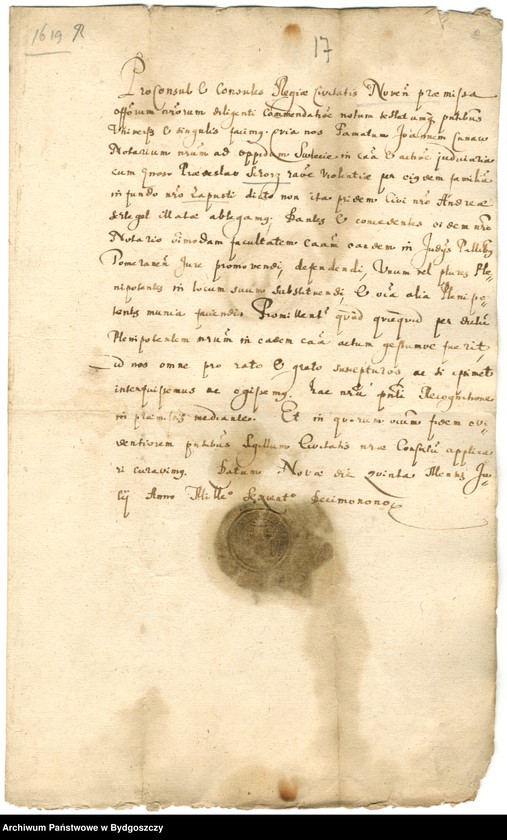 1619 R
17
Proconsul et Consules Regiæ Civitatis Noven præmissa
offorum nrorum diligenti commendatioe notum testatumq
Universis et singulis facimq. quia nos Famatum Joannem
Notarium nrum ad oppidum Swiecie in caa et actioe judiciaria
cum gnoso Prædeslao ratoe violentiæ per eiusdem familia
in fundo nro dicto non ita pridem Civi nro Andreæ
illatæ ablegamq. Dantes et concedentes eidem nro
Notario omimodam facultatem caam eandem in Judys Pallibq
Pomeranen Jure promovendi, defendendi, Unum vel plures Ple-
nipotentes in locum suum substituendi, et oia alia Plenipo-
tentis munia faciendi. Promittent quod quicquid per dictu
Plenipotentem nrum in eadem caa actum gestumve fuerit
id nos omne pro rato et grato suscepturos ac si ipsimet
interfuissemus ac egissemq. hac nra pnti Recognitione
in præmissis mediante. Et in quorum oium fidem evi-
dentiorem pntibus Sigillum Civitatis nræ Consulu applica
ri curavimq. Datum Novæ die quinta Mensis Ju-
lij Anno Mill° Sexcent° Decimonono
Archiwum Państwowe w Bydgoszczy